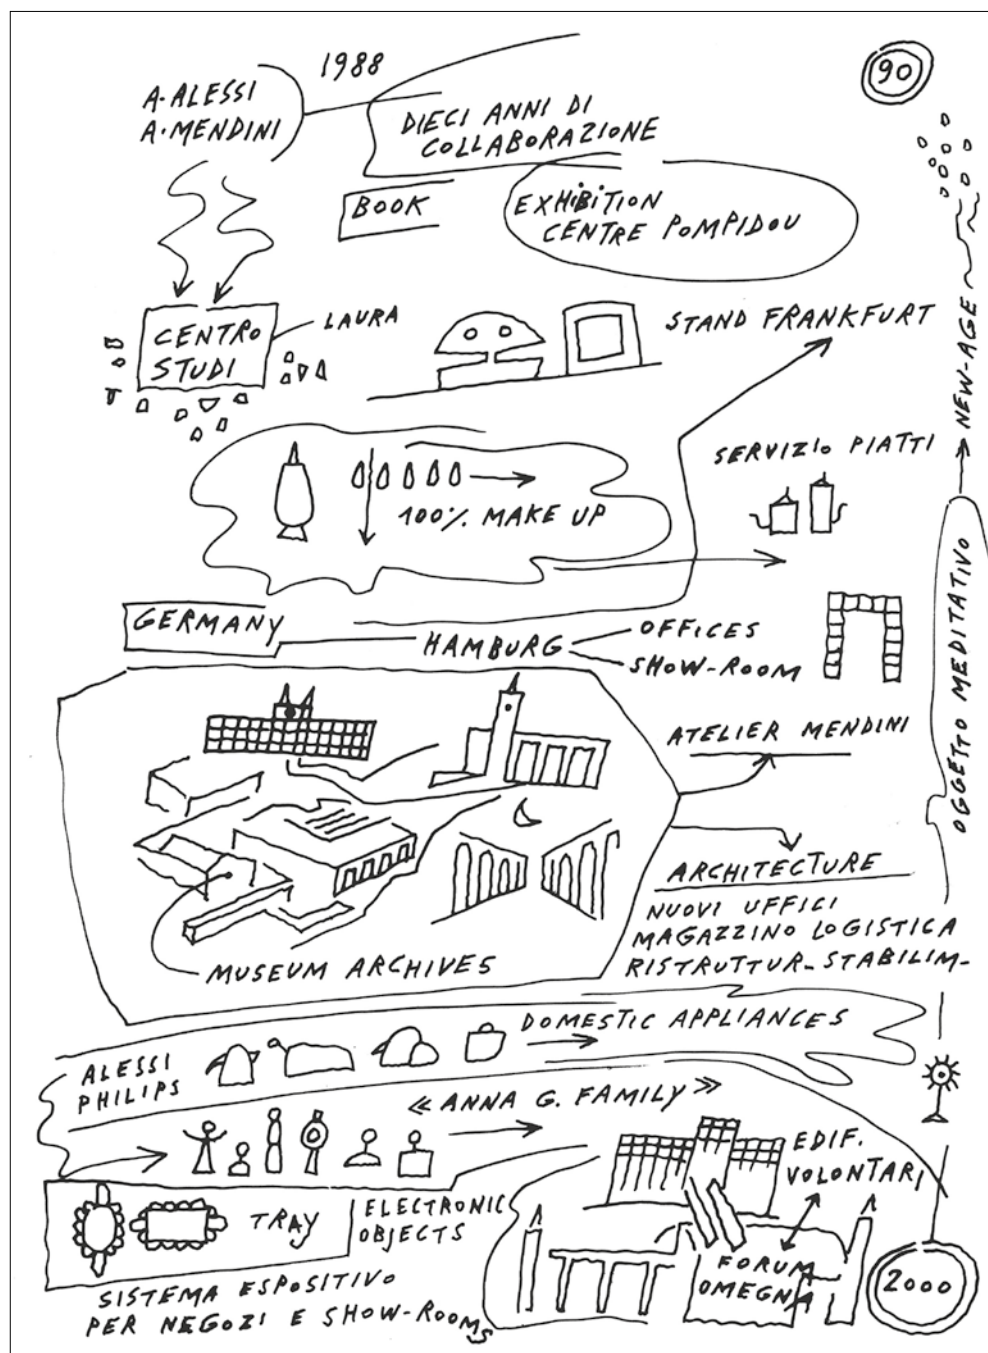 1988
90
A. ALESSI
A. MENDINI
DIECI ANNI DI
COLLABORAZIONE
BOOK
EXHIBITION
CENTRE POMPIDOU
CENTRO
STUDI
LAURA
STAND FRANKFURT
NEW-AGE
SERVIZIO PIATTI
100% MAKE UP
OGGETTO MEDITATIVO
GERMANY
HAMBURG
OFFICES
SHOW-ROOM
ATELIER MENDINI
ARCHITECTURE
NUOVI UFFICI
MAGAZZINO LOGISTICA
RISTRUTTUR_ STABILIM_
MUSEUM ARCHIVES
DOMESTIC APPLIANCES
ALESSI
PHILIPS
« ANNA G. FAMILY »
EDIF.
VOLONTARI
TRAY
ELECTRONIC
OBJECTS
FORUM
OMEGNA
2000
SISTEMA ESPOSITIVO
PER NEGOZI E SHOW-ROOMS